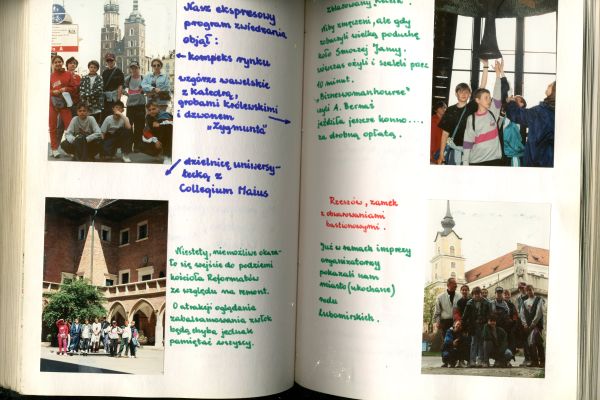 Nasz ekspresowy
program zwiedzania
objął:
- kompleks rynku
wzgórze wawelskie
z Katedrą,
grobami królewskimi
i dzwonem
"Zygmunta"
dzielnicę uniwersy-
tecką z
Collegium Maius
Niestety, niemożliwe okaza-
ło się wejście do podziemi
kościoła Reformatów
ze względu na remont.
O atrakcji oglądania
zabalsamowania zwłok
będą chyba jednak
pamiętać wszyscy.
Niby zmęczeni, ale gdy
zobaczyli wielką poduchę
koło Smoczej Jamy
wówczas ożyli i szaleli przez
10 minut.
"Biznesswomanhourse"
czyli A. Bernaś
jeździła jeszcze konno...
za drobną opłatą.
Rzeszów, zamek
z obwarowaniami
bastionowymi.
Już w ramach imprezy
organizatorzy
pokazali nam
miasto (ukochane)
rodu
Lubomirskich.